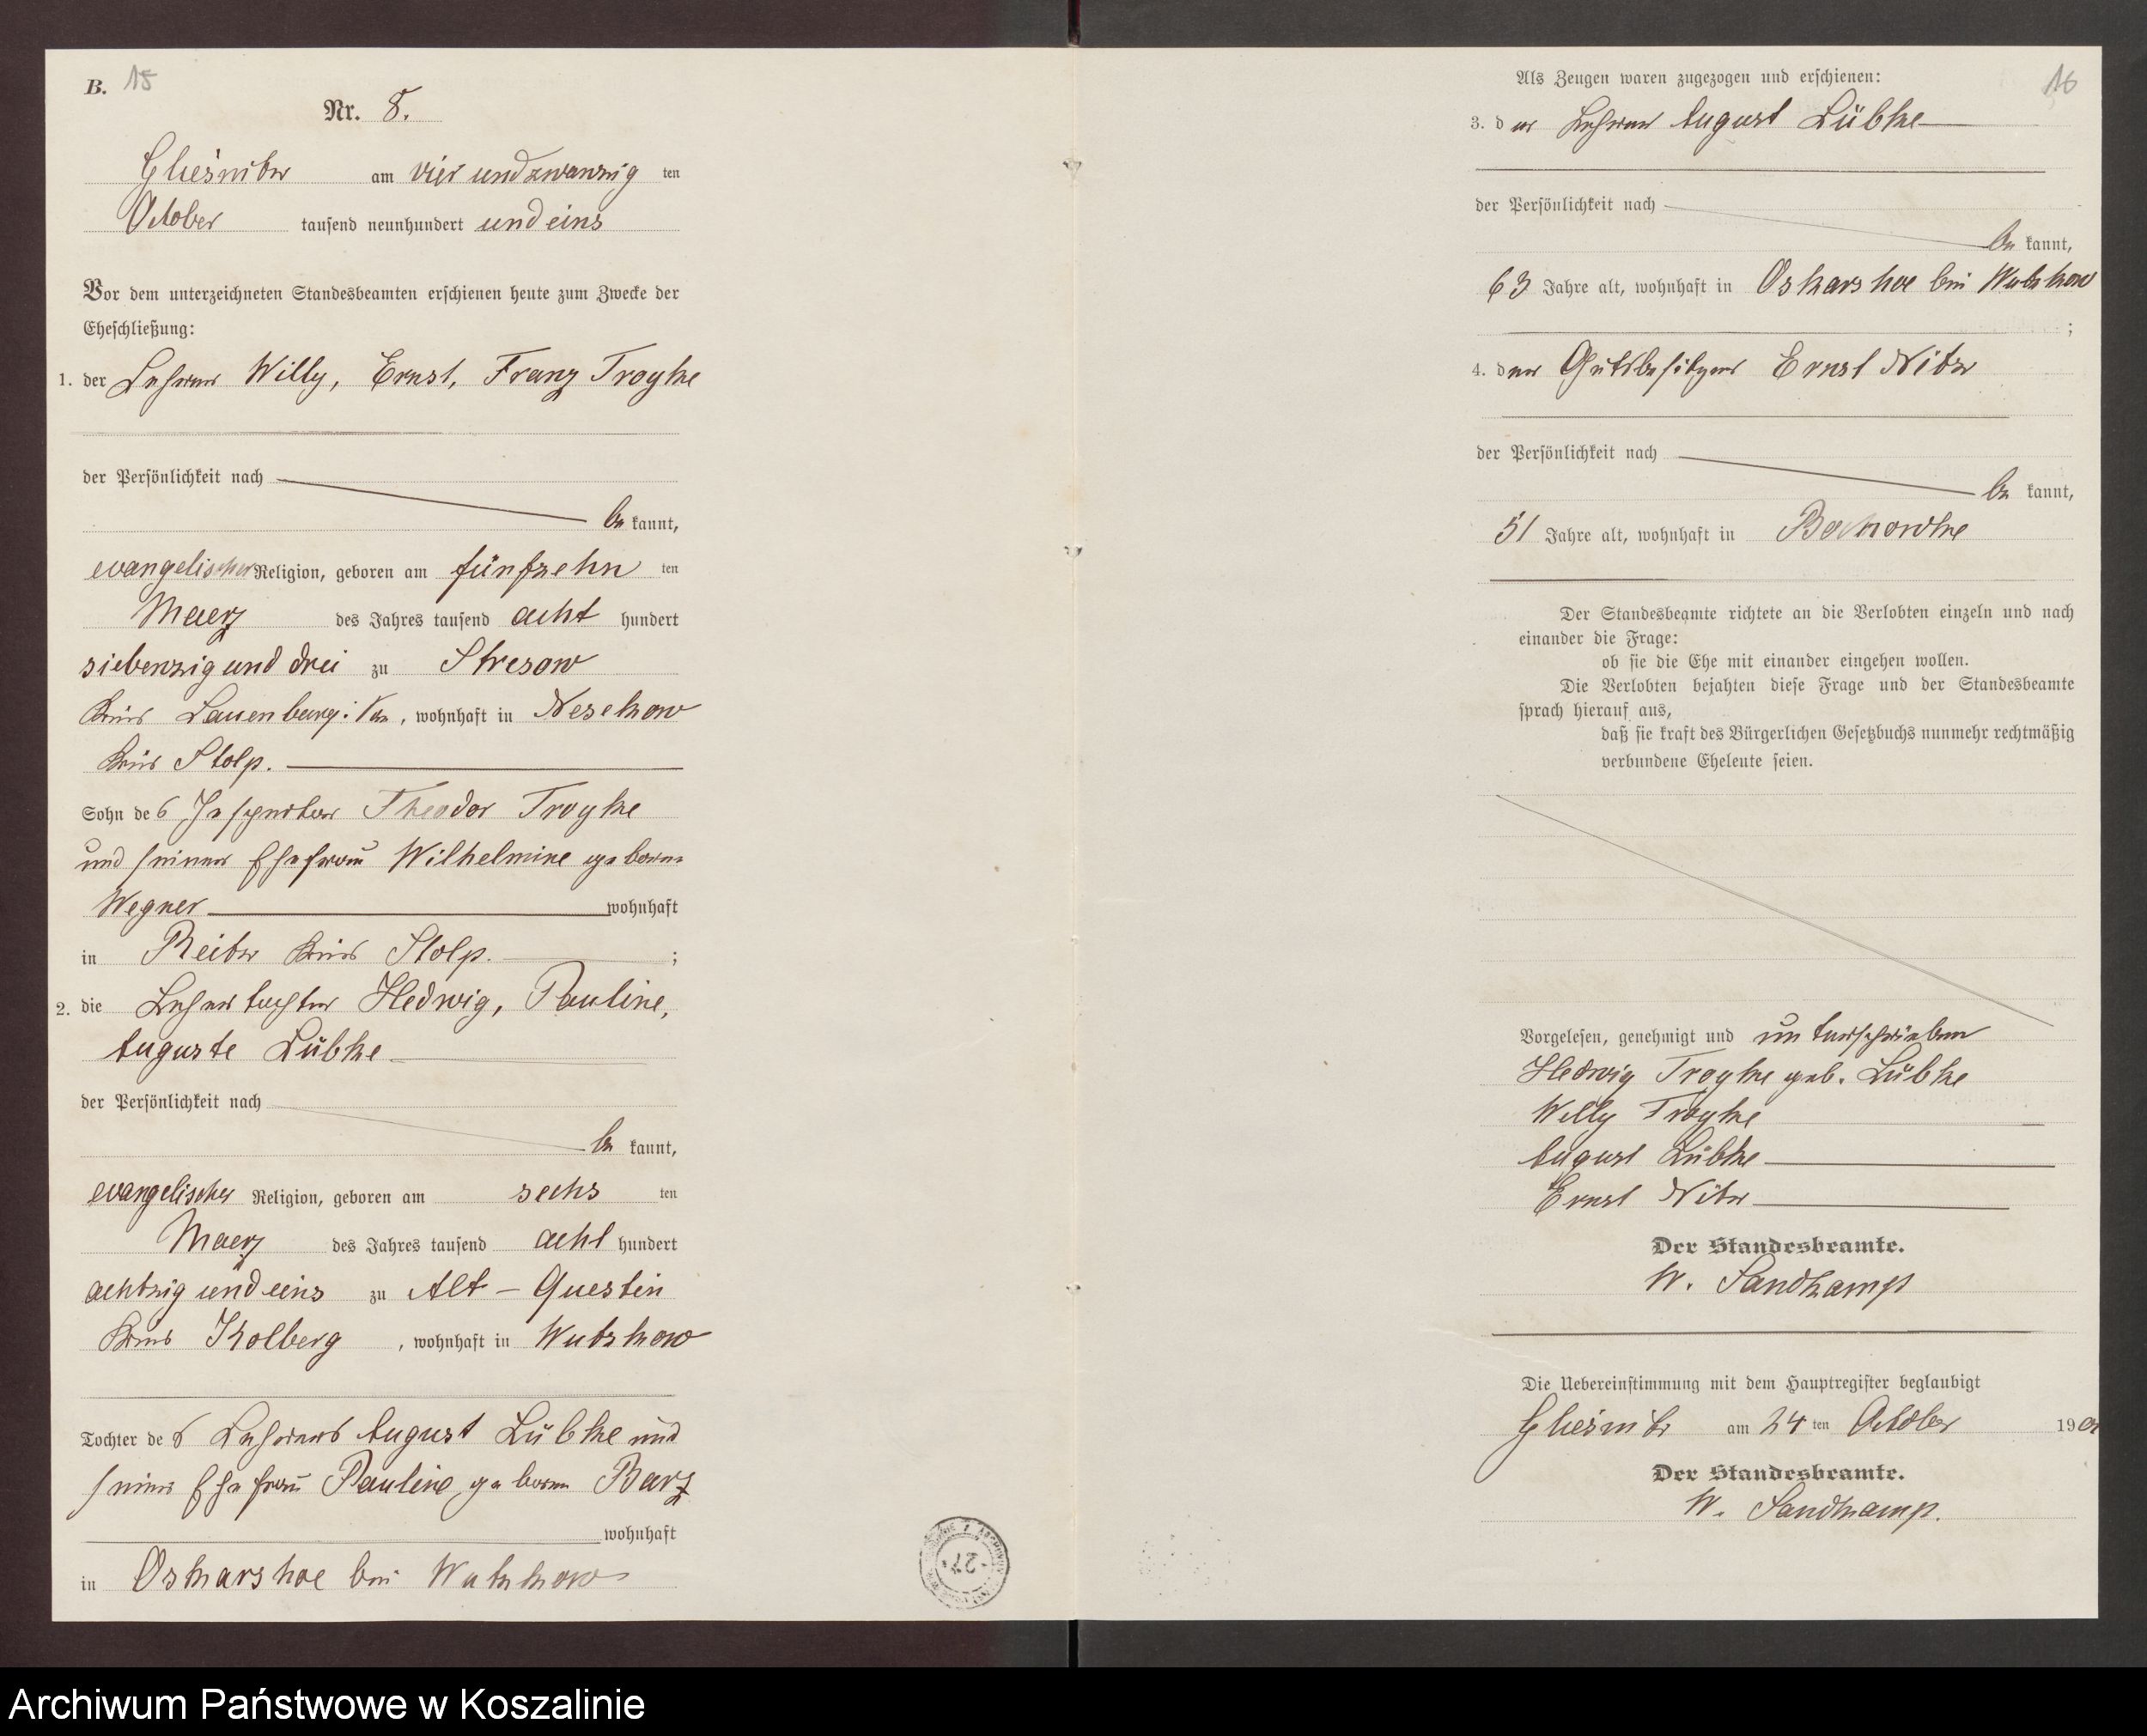 B. 15
Nr. 8.
Gliesnitz am vier und zwanzig ten
October tausend neunhundert und eins
Vor dem unterzeichneten Standesbeamten erschienen heute zum Zwecke der
Eheschließung:
1. der Lehrer Willy, Ernst, Franz Troyke
der Persönlichkeit nach
be kannt,
evangelischer Religion, geboren am fünfzehn ten
Maerz des Jahres tausend acht hundert
siebenzig und drei zu Stresow
Kreis Lauenburg i/Pm, wohnhaft in Nesekow
Kreis Stolp.
Sohn des Inspektors Theodor Troyke
und seiner Ehefrau Wilhelmine geborne
Wegner wohnhaft
in Reitz Kreis Stolp. ;
2. die Lehrertochter Hedwig, Pauline,
Auguste Lübke
der Persönlichkeit nach
be kannt,
evangelischer Religion, geboren am sechs ten
Maerz des Jahres tausend acht hundert
achtzig und eins zu Alt - Questin
Kreis Kolberg, wohnhaft in Wutzkow
Tochter des Lehrers August Lübke und
seiner Ehefrau Pauline geborne Barz
wohnhaft
in Oskarshoe bei Wutzkow
Als Zeugen waren zugezogen und erschienen: 16
3. der Lehrer August Lübke
der Persönlichkeit nach
be kannt,
63 Jahre alt, wohnhaft in Oskarshoe bei Wutzkow
;
4. der Gutsbesitzer Ernst Nitz
der Persönlichkeit nach
be kannt,
51 Jahre alt, wohnhaft in Bochowke
Der Standesbeamte richtete an die Verlobten einzeln und nach
einander die Frage:
ob sie die Ehe mit einander eingehen wollen.
Die Verlobten bejahten diese Frage und der Standesbeamte
sprach hierauf aus,
daß sie kraft des Bürgerlichen Gesetzbuchs nunmehr rechtmäßig
verbundene Eheleute seien.
Vorgelesen, genehmigt und unterschrieben
Hedwig Troyke geb. Lübke
Willy Troyke
August Lübke
Ernst Nitz
Der Standesbeamte.
W. Sandkamp
Die Uebereinstimmung mit dem Hauptregister beglaubigt
Gliesnitz am 24 ten October 1901
Der Standesbeamte.
W. Sandkamp.
27
Archiwum Państwowe w Koszalinie